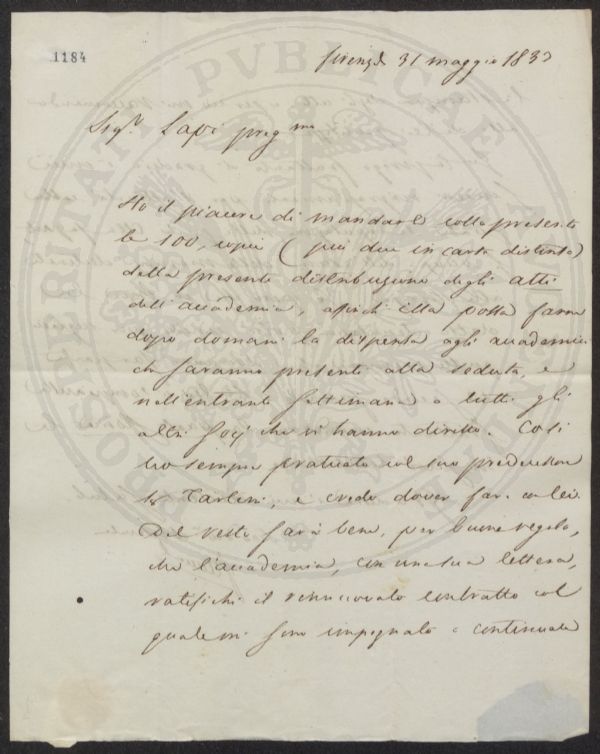 1184
Firenze 31 maggio 183
Sigr. Lapi pregmo
Ho il piacere di mandarle colla presente
le 100, copie (più due in carta distinta)
della presente distribuzione degli atti
dell'accademia, affinchè Ella possa farne
dopo domani la dispensa agli accademici
che saranno presenti alla seduta, e
nell'entrante settimana a tutti gli
altri socj che vi hanno diretto. Così
ho sempre praticato col suo predecessore
Sr Tartini, e credo dover far con lei.
Del resto sarà bene, per buona regola,
che l'accademia, con una sua lettera,
ratifichi il rinnuovato contratto col
quale mi sono impegnato a continuare
PROSPERITATI PVBLICAE